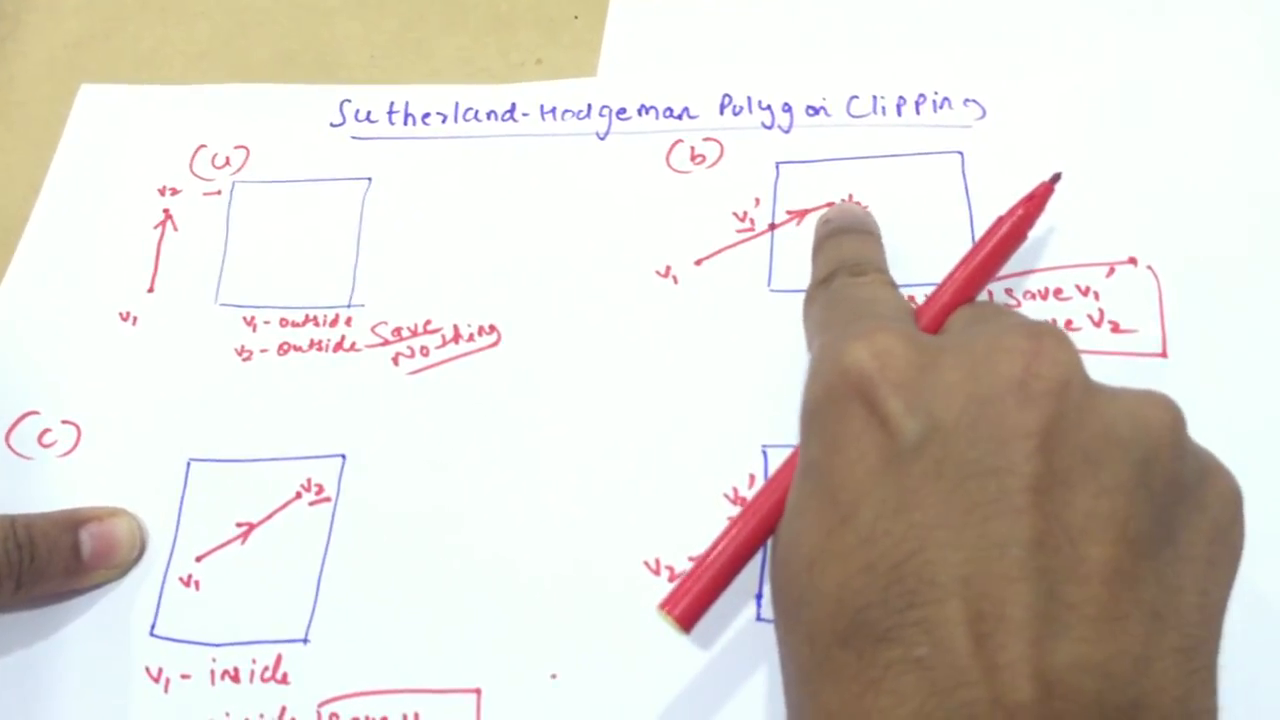 Sutherland-Hodgeman Polygon Clipping
(a)
v2
v1
v1 - outside
v2 - outside Save Nothing
(b)
v1'
v1
save v1'
v2
(c)
v2
v1
v1 - inside
inside
v2